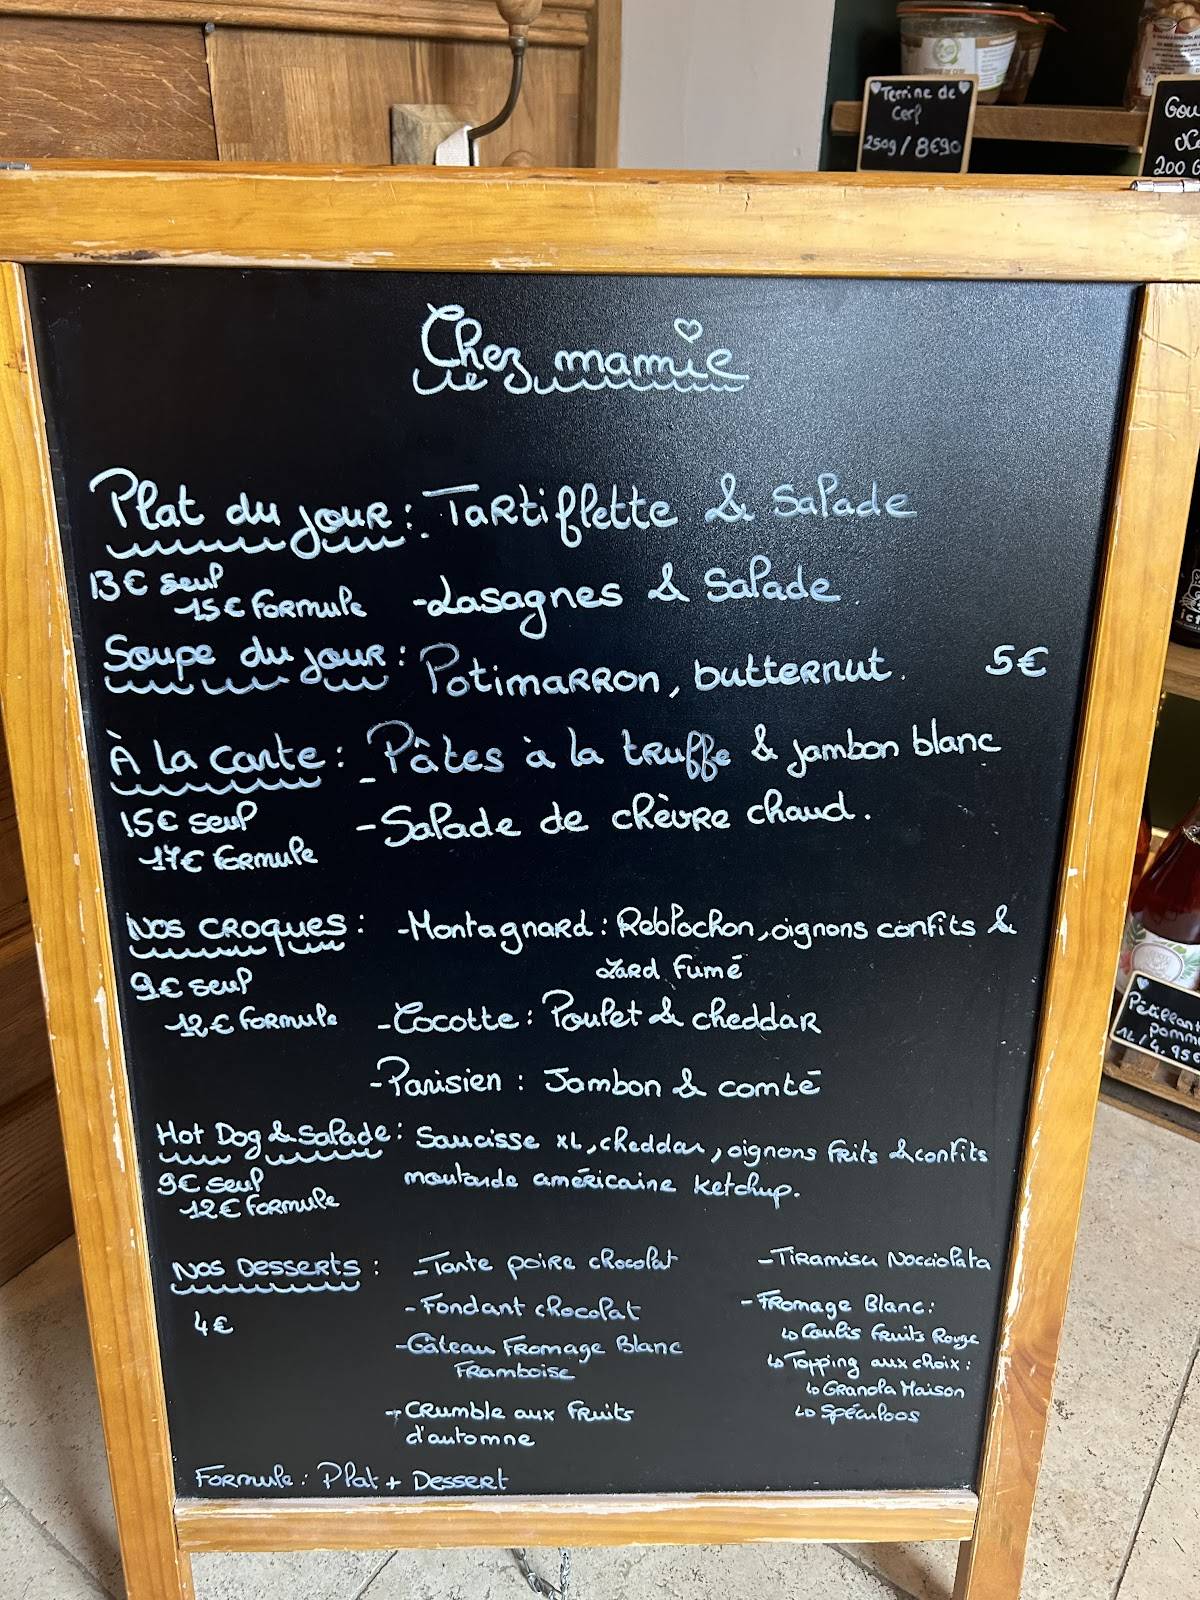 Terrine de
Cerf
250g / 8€90
200 G
Chez mamie
Plat du jour : Tartiflette & Salade
13€ seul
15€ Formule
- Lasagnes & Salade
Soupe du jour : Potimarron, butternut. 5€
À la carte : - Pâtes à la truffe & jambon blanc
15€ seul
17€ formule
- Salade de chèvre chaud.
Nos Croques : - Montagnard : Reblochon, oignons confits &
Lard Fumé
9€ seul
12€ Formule
- Cocotte : Poulet & cheddar
- Parisien : Jambon & comté
Hot Dog & Salade : Saucisse XL, cheddar, oignons frits & confits
moutarde américaine ketchup.
9€ seul
12€ Formule
Nos Desserts :
4€
- Tarte poire chocolat
- Fondant chocolat
- Gâteau Fromage Blanc
Framboise
- Crumble aux Fruits
d'automne
- Tiramisu Nocciolata
- Fromage Blanc :
↳ Coulis Fruits Rouge
↳ Topping aux choix :
↳ Granola Maison
↳ Spéculoos
Formule : Plat + Dessert
Pétillant
pomme
1L / 4,95€